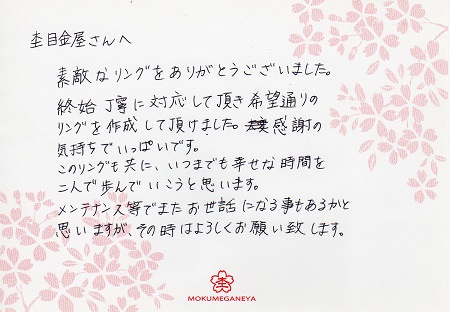 杢目金屋さんへ
素敵なリングをありがとうございました。
終始丁寧に対応して頂き希望通りの
リングを作成して頂けました。感謝の
気持ちでいっぱいです。
このリングも共に、いつまでも幸せな時間を
二人で歩んでいこうと思います。
メンテナンス等でまたお世話になる事もあるかと
思いますが、その時はよろしくお願い致します。
杢
MOKUMEGANEYA